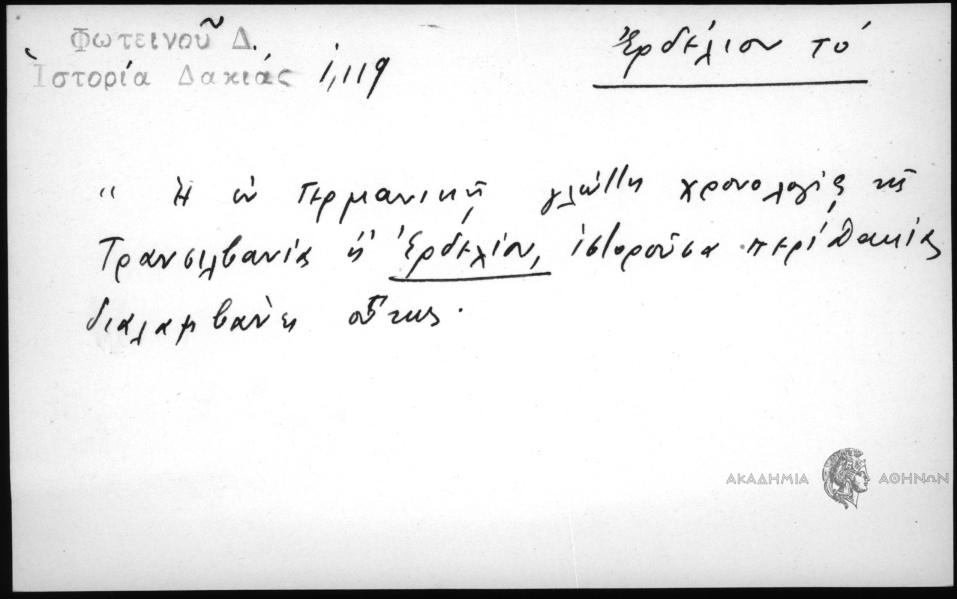 Φωτεινοῦ Δ.
Ἱστορία Δακιάς Ι,119
Ἐρδέλιον τό
“ Ἡ ἐν Γερμανικῇ γλώττῃ χρονολογία τῆς
Τρανσιλβανίας ἤ Ἐρδελίου, ἱστοροῦσα περί Δακίας
διαλαμβάνει οὕτως.
ΑΚΑΔΗΜΙΑ ΑΘΗΝΩΝ